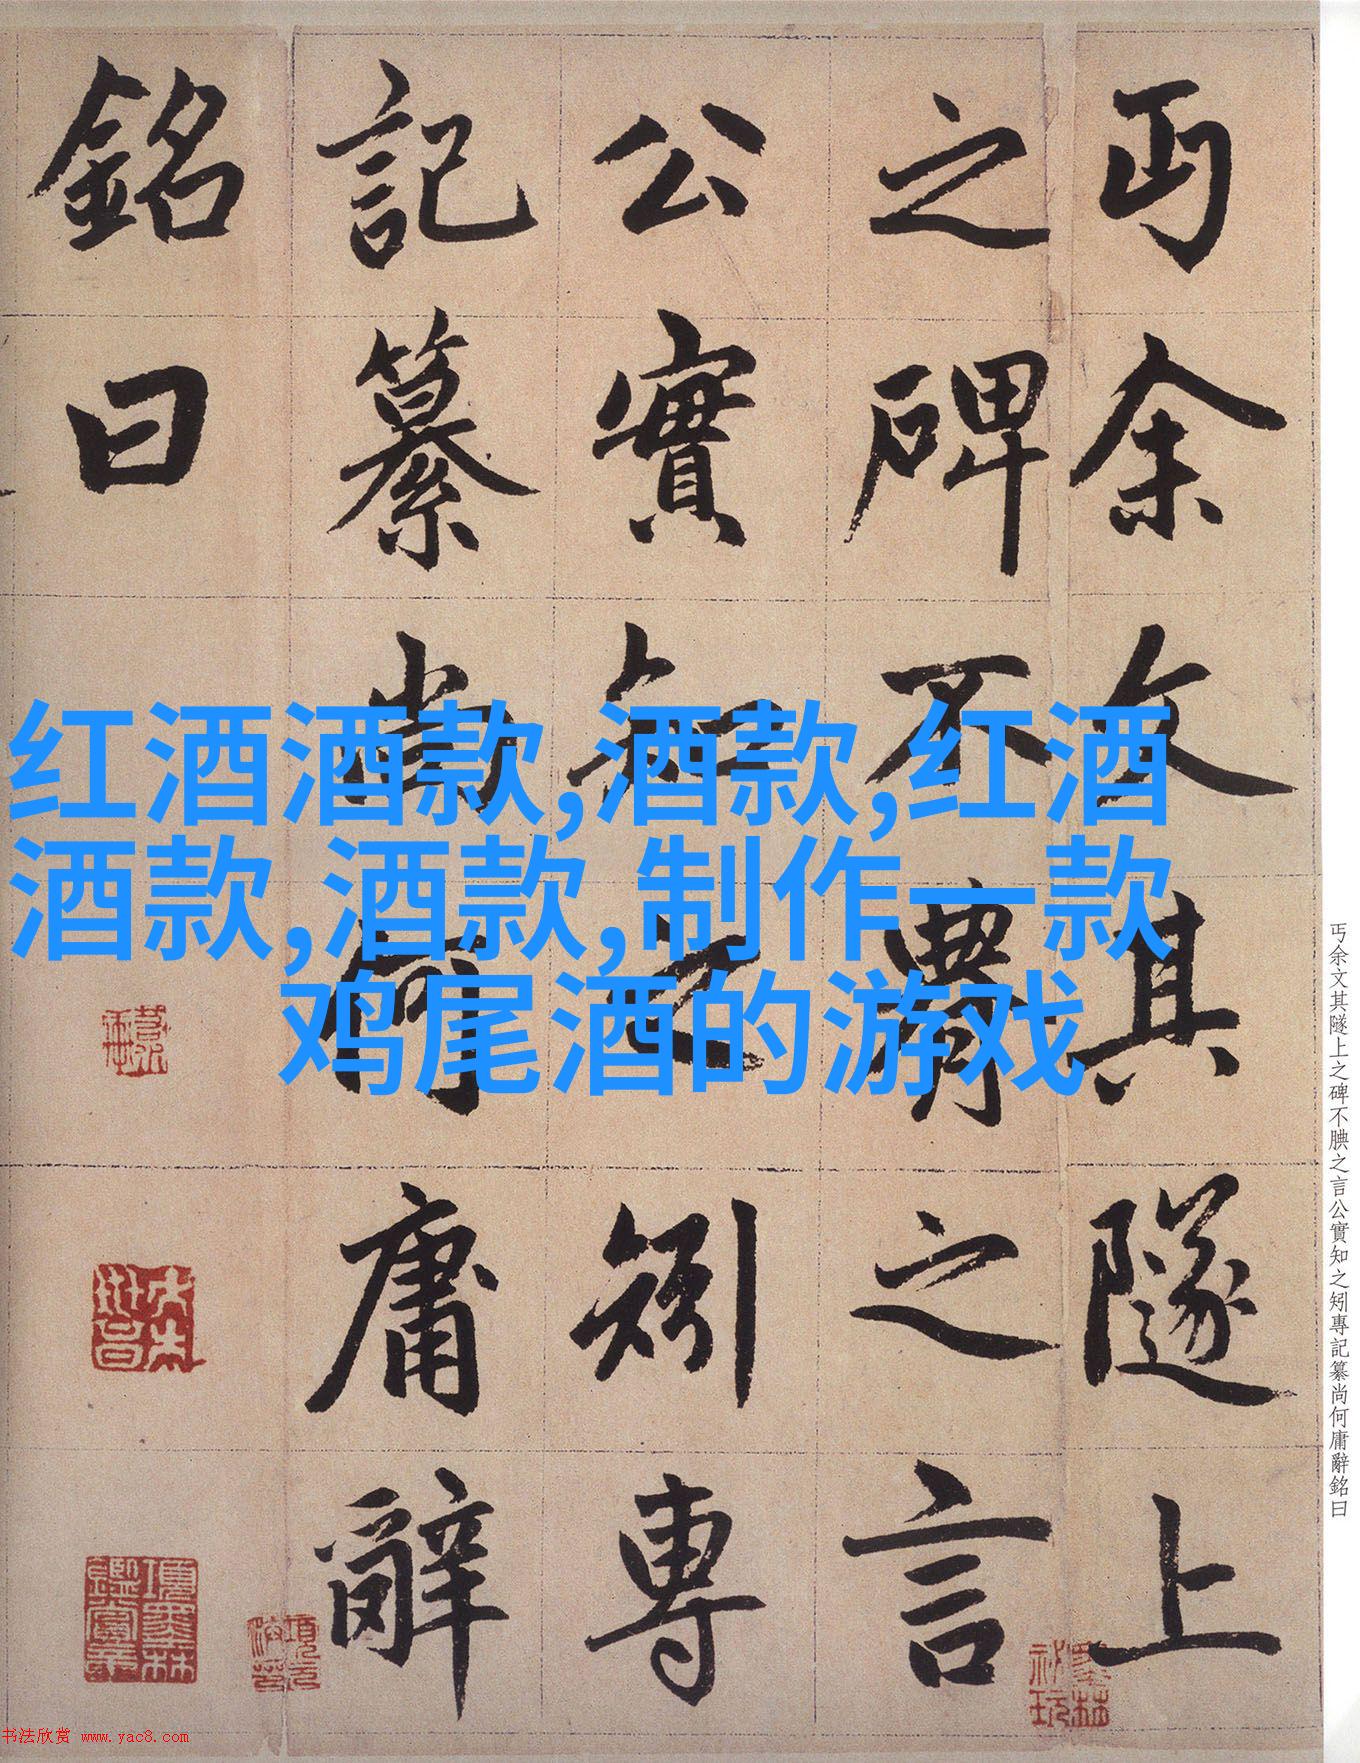 丏余文其隧上
之碑不腆之言
公實知之矧專
記纂尚何庸辭
銘曰
红酒酒款,酒款,红酒
酒款,酒款,制作一款
鸡尾酒的游戏
丏余文其隧上之碑不腆之言公實知之矧專記纂尚何庸辭銘曰
項墨林鑑賞章
书法欣赏 www.yac8.com